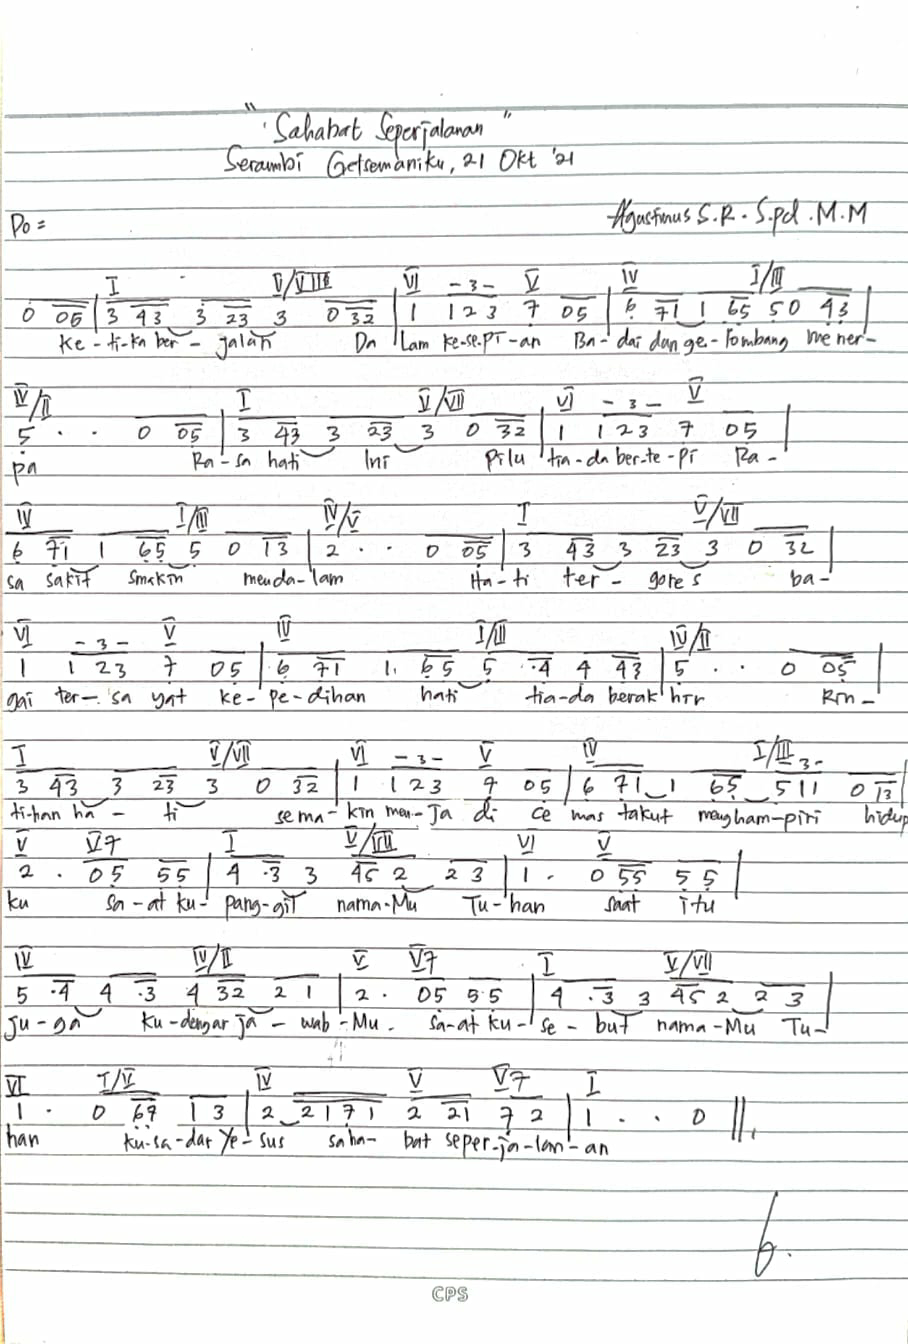 " Sahabat Seperjalanan "
Serambi Getsemaniku, 21 Okt '21
Agustinus S.R. S.pd. M.M
Do =
I V/VII VI -3- V IV I/III
0 05 | 3 43 3 23 3 0 32 | 1 1 2 3 7 05 | 6 71 1 65 50 43 |
Ke-ti-ka ber-jalan Da lam ke-se-pi-an Ba-dai dan ge-lombang mener-
IV/II I V/VII VI -3- V
5 . . 0 05 | 3 43 3 23 3 0 32 | 1 1 2 3 7 05 |
pa Ra-sa hati Ini pilu tia-da ber-te-pi Ra-
IV I/III IV/V I V/VII
6 71 1 65 5 0 13 | 2 . . 0 05 | 3 43 3 23 3 0 32 |
sa sakit smakin menda-lam Ha-ti ter-gores ba-
VI -3- V IV I/III IV/II
1 1 2 3 7 05 | 6 71 1. 65 5 .4 4 43 | 5 . . 0 05 |
gai ter-sa yat ke-pe-dihan hati tia-da berak hir Rin-
I V/VII VI -3- V IV I/III -3-
3 43 3 23 3 0 32 | 1 1 2 3 7 05 | 6 71 1 65 5 1 1 0 13
ti-han ha-ti sema-kin men-ja di ce mas takut mengham-piri hidup
V V7 I V/VII VI V
2 . 05 55 | 4 .3 3 45 2 2 3 | 1 . 0 55 5 5 |
ku sa-at ku-pang-gil nama-Mu Tu-han saat itu
IV IV/II V V7 I V/VII
5 .4 4 .3 4 32 2 1 | 2 . 05 55 | 4 .3 3 45 2 2 3 |
ju-ga ku-dengar ja-wab-Mu. sa-at ku-se-but nama-Mu Tu-
VI I/V IV V V7 I
1 . 0 67 1 3 | 2 2 1 7 1 2 21 7 2 | 1 . . 0 ||
han ku-sa-dar Ye-sus saha-bat seper-ja-lan-an
CPS